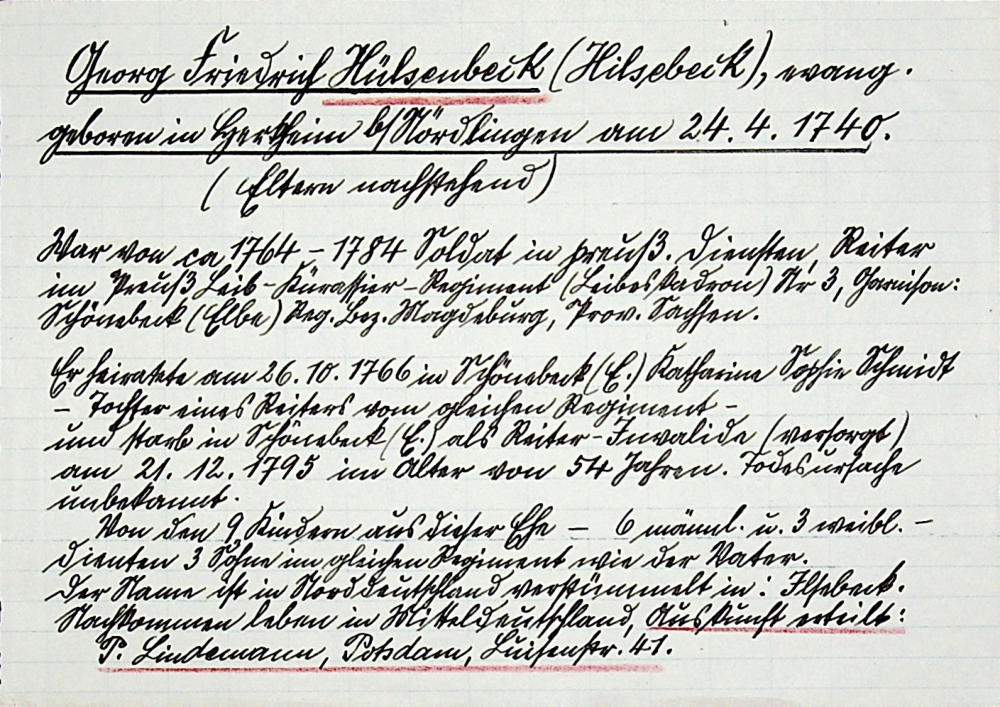 Georg Friedrich Hülsenbeck (Hilsebeck), evang.
geboren in Herkheim b/Nördlingen am 24. 4. 1740.
(Eltern nachstehend)
War von ca 1764 – 1784 Soldat in preuß. Diensten, Reiter
im Preuß Leib-Kürassier-Regiment (Leibeskadron) Nr 3, Garnison:
Schönebeck (Elbe) Reg. Bez. Magdeburg, Prov. Sachsen.
Er heiratete am 26. 10. 1766 in Schönebeck (E.) Katharine Sophie Schmidt
– Tochter eines Reiters vom gleichen Regiment –
und starb in Schönebeck (E.) als Reiter-Invalide (versorgt)
am 21. 12. 1795 im Alter von 54 Jahren. Todesursache
unbekannt.
Von den 9 Kindern aus dieser Ehe – 6 männl. u. 3 weibl. –
dienten 3 Söhne im gleichen Regiment wie der Vater.
Der Name ist in Norddeutschland verstümmelt in: Ilsebeck.
Nachkommen leben in Mitteldeutschland, Auskunft erteilt:
P. Lindemann, Potsdam, Luisenstr. 41.